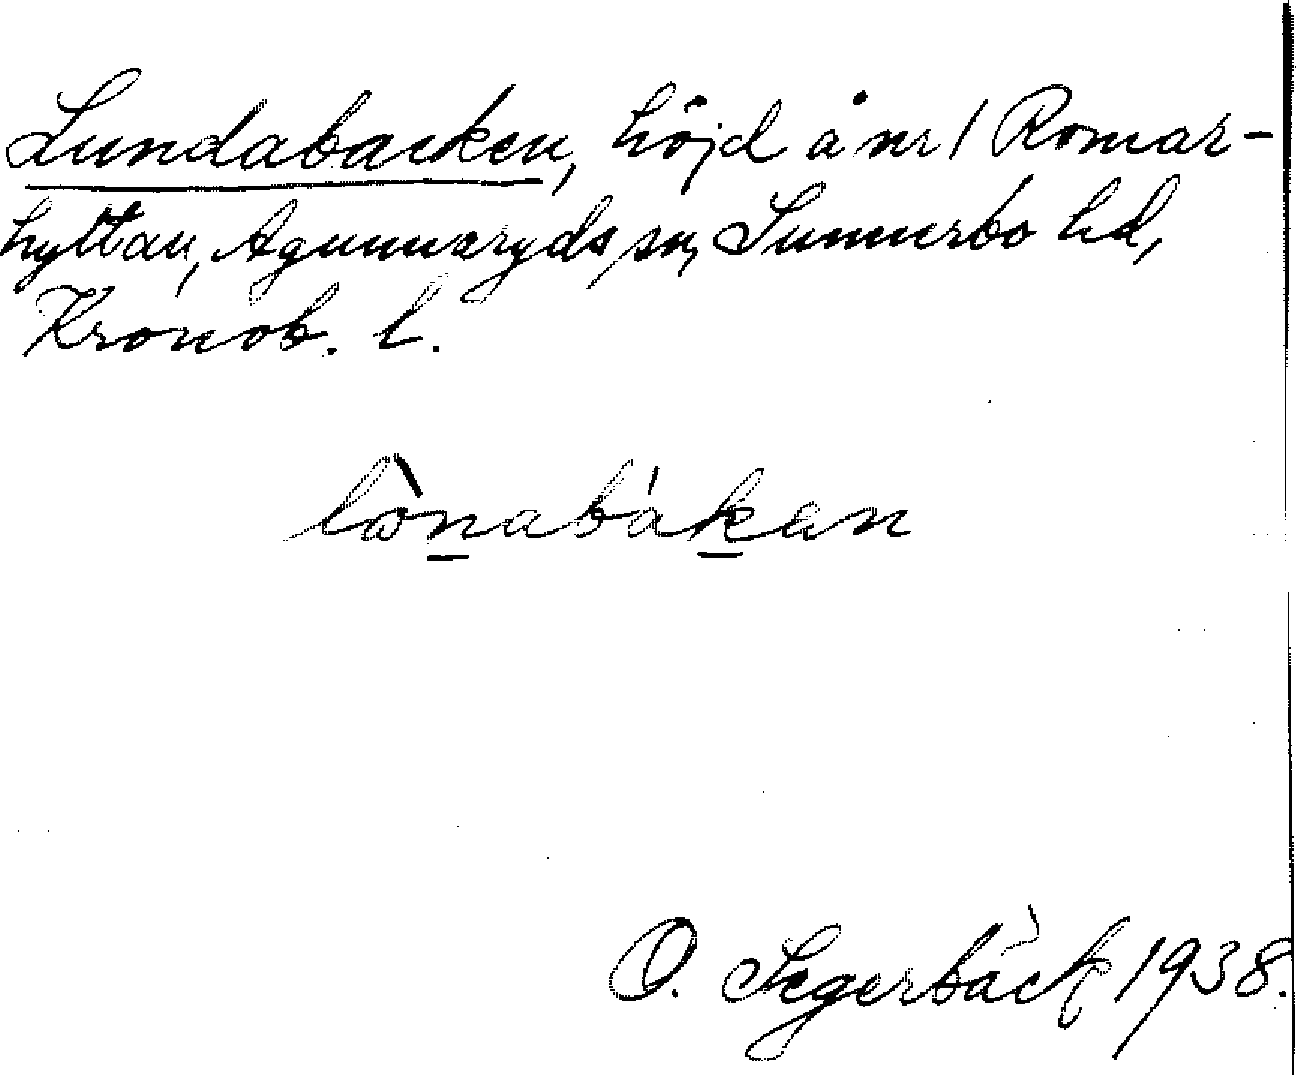 Lundabacken, höjd å nr 1 Romar-
hyltan, Agunnaryds sn, Sunnerbo hd,
Kronob. l.
lo̱nabáḵan
O. Segerbäck 1938.